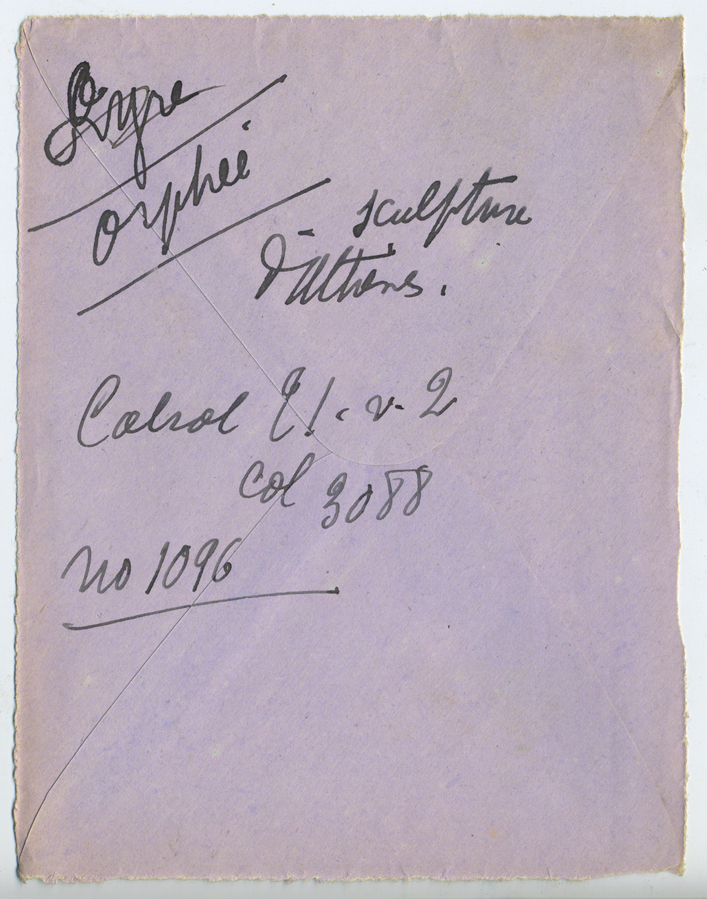 Lyre
orphée
sculpture
d'Athènes.
Cabrol t1. v. 2
col 3088
no 1096